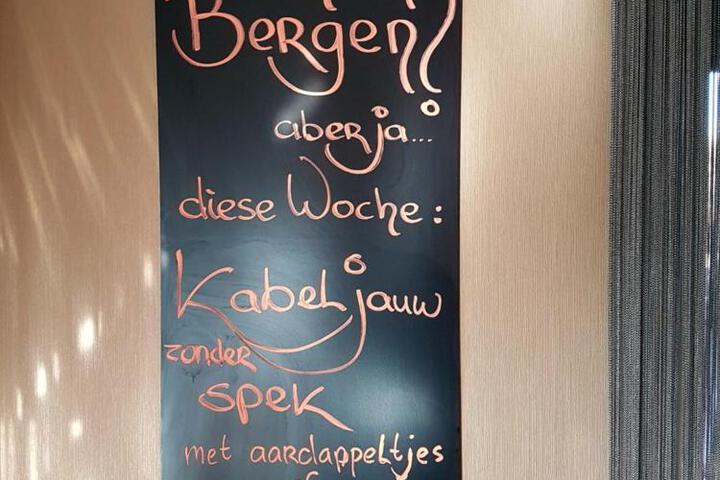 Bergen?
aber ja...
diese Woche:
Kabeljauw
zonder
spek
met aardappeltjes